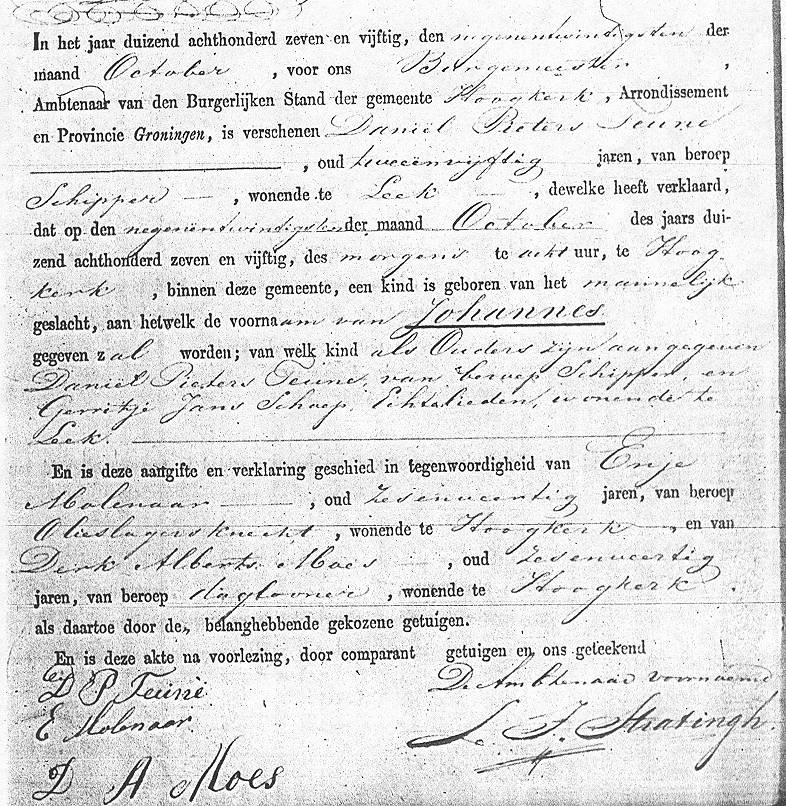 In het jaar duizend achthonderd zeven en vijftig, den negenentwindigsten der
maand October , voor ons Burgemeester ,
Ambtenaar van den Burgerlijken Stand der gemeente Hoogkerk , Arrondissement
en Provincie Groningen, is verschenen Daniel Pieters Teune
, oud tweeënvijftig jaren, van beroep
Schipper — , wonende te Leek — , dewelke heeft verklaard,
dat op den negenentwindigsten der maand October des jaars dui-
zend achthonderd zeven en vijftig, des morgens te acht uur, te Hoog
kerk , binnen deze gemeente, een kind is geboren van het mannelijk
geslacht, aan hetwelk de voornaam van Johannes
gegeven zal worden; van welk kind als Ouders zijn aangegeven
Daniel Pieters Teune, van beroep Schipper, en
Gerritje Jans Schoep, Echtelieden, wonende te
Leek.
En is deze aangifte en verklaring geschied in tegenwoordigheid van Enje
Molenaar — , oud zesenveertig jaren, van beroep
Olieslagersknecht , wonende te Hoogkerk — , en van
Derk Alberts Moes — , oud zesenveertig
jaren, van beroep daglooner , wonende te Hoogkerk .
als daartoe door de, belanghebbende gekozene getuigen.
En is deze akte na voorlezing, door comparant getuigen en ons geteekend
D P Teune De Ambtenaar voornoemd
E Molenaar
L. J. Stratingh.
D A Moes